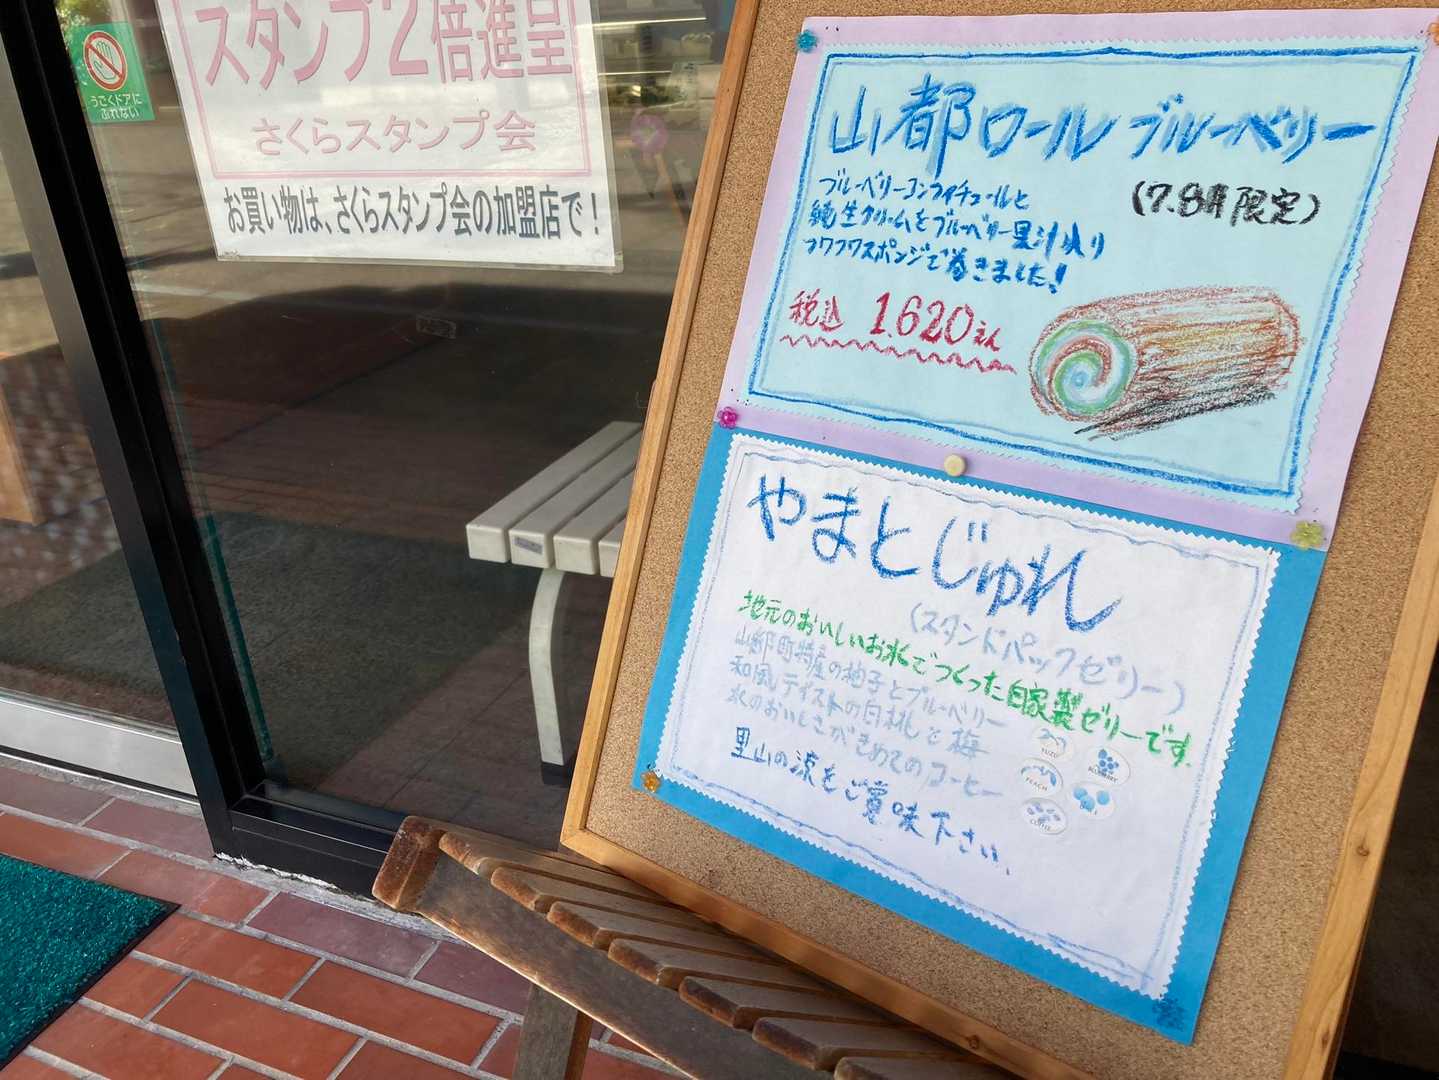 うごくドアに
ふれない
スタンプ2倍進呈
さくらスタンプ会
お買い物は、さくらスタンプ会の加盟店で!
山都ロールブルーベリー
(7.8月限定)
ブルーベリーコンフィチュールと
純生クリームをブルーベリー果汁入り
フワフワスポンジで巻きました!
税込 1.620えん
やまとじゅれ
(スタンドパックゼリー)
地元のおいしいお水でつくった自家製ゼリーです。
山都町特産の柚子とブルーベリー
和風テイストの白桃と梅
水のおいしさがきめてのコーヒー
里山の涼をご賞味下さい。
YUZU
BLUEBERRY
PEACH
COFFEE